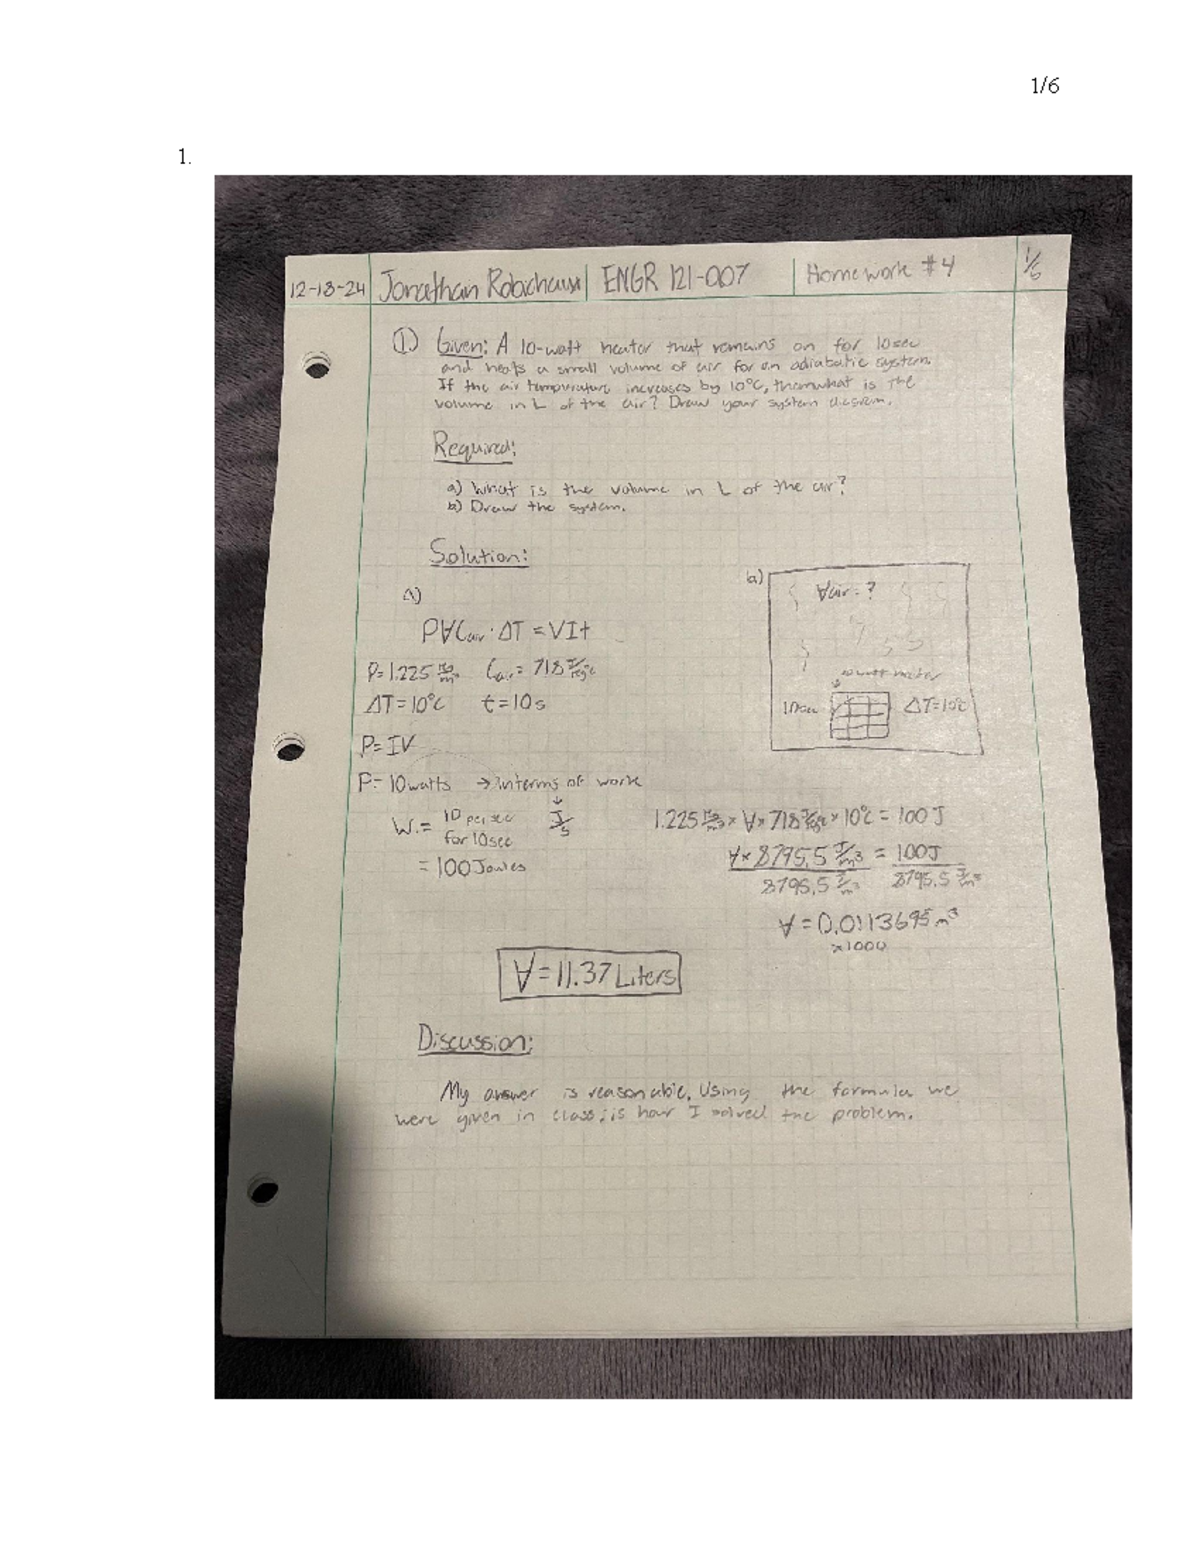 1/6
1.
12-13-24 Jonathan Robichaux ENGR 121-007 Homework #4 1/6
① Given: A 10-watt heater that remains on for 10sec
and heats a small volume of air for an adiabatic system.
If the air temperature increases by 10°C, then what is the
volume in L of the air? Draw your system diagram.
Required:
a) What is the volume in L of the air?
b) Draw the system.
Solution:
A)
b)
∀air = ?
P∀Cair · ΔT = VIt
P=1.225 kg/m³ Cair = 718 J/kg°C
10 watt heater
ΔT=10°C t=10s
10sec ΔT=10°C
P=IV
P=10watts → Interms of work
↓
J/s
W.= 10 per sec
for 10sec
= 100 Joules
1.225 kg/m³ × ∀ × 718 J/kg°C × 10°C = 100 J
∀ × 8795.5 J/m³ = 100J
8795.5 J/m³ 8795.5 J/m³
∀ = 0.0113695 m³
×1000
∀=11.37 Liters
Discussion:
My answer is reasonable. Using the formula we
were given in class; is how I solved the problem.